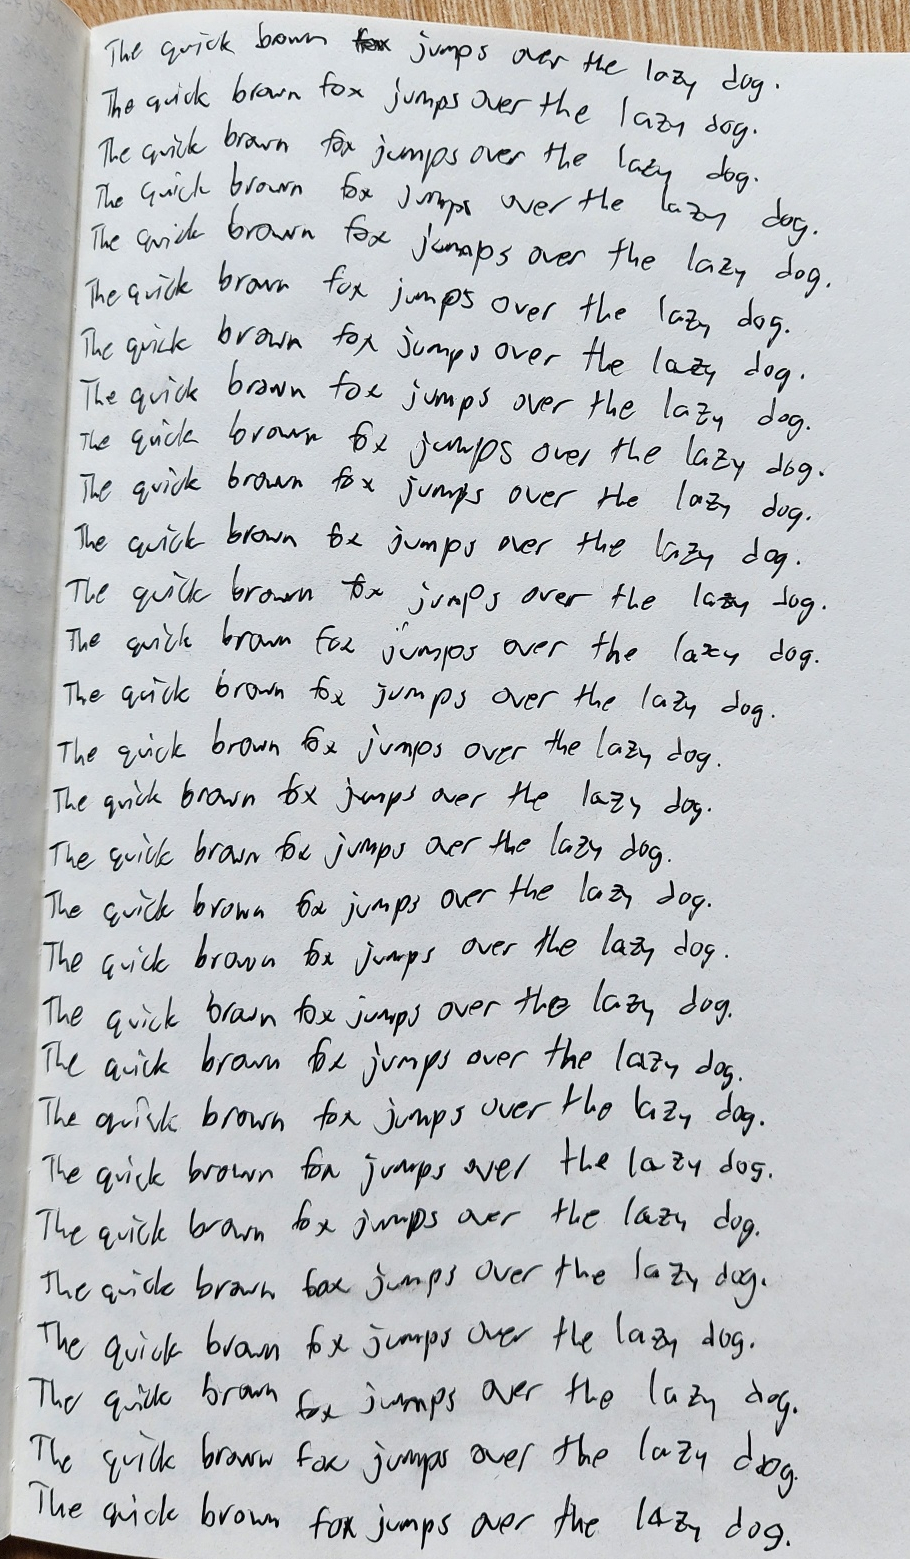 The quick brown fox jumps over the lazy dog.
The quick brown fox jumps over the lazy dog.
The quick brown fox jumps over the lazy dog.
The quick brown fox jumps over the lazy dog.
The quick brown fox jumps over the lazy dog.
The quick brown fox jumps over the lazy dog.
The quick brown fox jumps over the lazy dog.
The quick brown fox jumps over the lazy dog.
The quick brown fox jumps over the lazy dog.
The quick brown fox jumps over the lazy dog.
The quick brown fox jumps over the lazy dog.
The quick brown fox jumps over the lazy dog.
The quick brown fox jumps over the lazy dog.
The quick brown fox jumps over the lazy dog.
The quick brown fox jumps over the lazy dog.
The quick brown fox jumps over the lazy dog.
The quick brown fox jumps over the lazy dog.
The quick brown fox jumps over the lazy dog.
The quick brown fox jumps over the lazy dog.
The quick brown fox jumps over the lazy dog.
The quick brown fox jumps over the lazy dog.
The quick brown fox jumps over the lazy dog.
The quick brown fox jumps over the lazy dog.
The quick brown fox jumps over the lazy dog.
The quick brown fox jumps over the lazy dog.
The quick brown fox jumps over the lazy dog.
The quick brown fox jumps over the lazy dog.
The quick brown fox jumps over the lazy dog.
The quick brown fox jumps over the lazy dog.